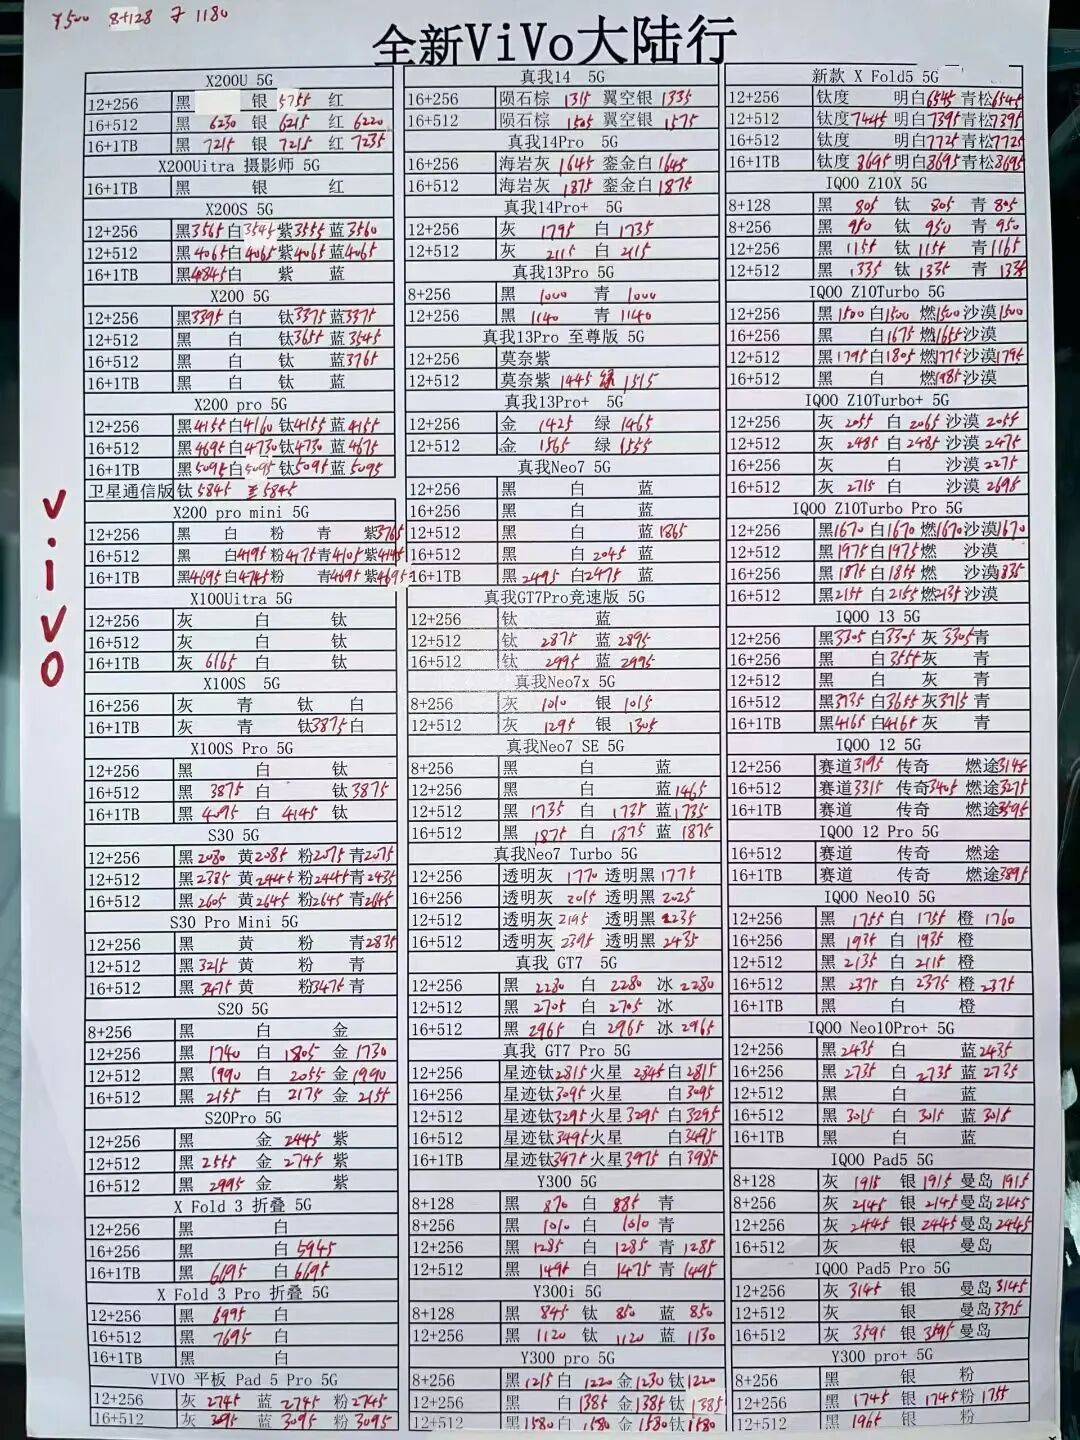 Y500 8+128 子 1180
全新ViVo大陆行
vivo
X200U 5G
12+256 黑 银 5755 红
16+512 黑 6230 银 6215 红 6220
16+1TB 黑 7215 银 7215 红 7235
X200Uitra 摄影师 5G
16+1TB 黑 银 红
X200S 5G
12+256 黑3565 白3545 紫3555 蓝3560
12+512 黑4065 白4065 紫4065 蓝4065
16+1TB 黑4845 白 紫 蓝
X200 5G
12+256 黑3395 白 钛3375 蓝3375
12+512 黑 白 钛3655 蓝3545
16+512 黑 白 钛 蓝3765
16+1TB 黑 白 钛 蓝
X200 pro 5G
12+256 黑4155 白4160 钛4155 蓝4155
16+512 黑4695 白4730 钛4730 蓝4675
16+1TB 黑5095 白5095 钛5095 蓝5095
卫星通信版 钛 5845 5845
X200 pro mini 5G
12+256 黑 白 粉 青 紫3765
16+512 黑 白4195 粉4175 青4105 紫4145
16+1TB 黑4695 白4745 粉 青4695 紫4695
X100Uitra 5G
12+256 灰 白 钛
16+512 灰 白 钛
16+1TB 灰 6165 白 钛
X100S 5G
16+256 灰 青 钛 白
16+1TB 灰 青 钛3875 白
X100S Pro 5G
12+256 黑 白 钛
16+512 黑 3875 白 钛 3875
16+1TB 黑 4095 白 4145 钛
S30 5G
12+256 黑 2080 黄2085 粉2075 青2075
12+512 黑 2385 黄2445 粉2445 青2435
16+512 黑 2605 黄2645 粉2645 青2645
S30 Pro Mini 5G
12+256 黑 黄 粉 青2835
12+512 黑 3215 黄 粉 青
16+512 黑 3475 黄 粉3475 青
S20 5G
8+256 黑 白 金
12+256 黑 1740 白 1805 金 1730
12+512 黑 1990 白 2055 金 1990
16+512 黑 2155 白 2175 金 2155
S20Pro 5G
12+256 黑 金 2445 紫
12+512 黑 2555 金 2745 紫
16+512 黑 2995 金 紫
X Fold 3 折叠 5G
12+256 黑 白
16+256 黑 白 5945
16+1TB 黑 6695 白 6695
X Fold 3 Pro 折叠 5G
12+256 黑 6995 白
16+512 黑 7695 白
16+1TB 黑 白
VIVO 平板 Pad 5 Pro 5G
12+256 灰 2745 蓝 2745 粉 2745
16+512 灰 3095 蓝 3095 粉 3095
真我14 5G
16+256 陨石棕 1315 翼空银 1335
16+512 陨石棕 1505 翼空银 1575
真我14Pro 5G
16+256 海岩灰 1645 銮金白 1645
16+512 海岩灰 1875 銮金白 1875
真我14Pro+ 5G
12+256 灰 1795 白 1735
12+512 灰 2115 白 2115
真我13Pro 5G
8+256 黑 1000 青 1000
12+256 黑 1140 青 1140
真我13Pro 至尊版 5G
12+256 莫奈紫
12+512 莫奈紫 1445 绿 1515
真我13Pro+ 5G
12+256 金 1425 绿 1465
12+512 金 1565 绿 1555
真我Neo7 5G
12+256 黑 白 蓝
16+256 黑 白 蓝
12+512 黑 白 蓝 1865
16+512 黑 白 2045 蓝
16+1TB 黑 2495 白2475 蓝
真我GT7Pro竞速版 5G
12+256 钛 蓝
12+512 钛 2875 蓝 2895
16+512 钛 2995 蓝 2995
真我Neo7x 5G
8+256 灰 1010 银 1015
12+512 灰 1295 银 1305
真我Neo7 SE 5G
8+256 黑 白 蓝
16+256 黑 白 蓝1465
12+512 黑 1735 白 1735 蓝1735
16+512 黑 1875 白 1875 蓝 1875
真我Neo7 Turbo 5G
12+256 透明灰 1770 透明黑 1775
16+256 透明灰 2015 透明黑 2025
12+512 透明灰 2195 透明黑 2235
16+512 透明灰 2395 透明黑 2435
真我 GT7 5G
12+256 黑 2280 白 2280 冰 2280
12+512 黑 2705 白 2705 冰
16+512 黑 2965 白 2965 冰 2965
真我 GT7 Pro 5G
12+256 星迹钛2815 火星 2845 白2815
16+256 星迹钛3095 火星 白3095
12+512 星迹钛3295 火星 3295 白3295
16+512 星迹钛3495 火星 白3495
16+1TB 星迹钛3975 火星 3975 白 3985
Y300 5G
8+128 黑 870 白 885 青
8+256 黑 1010 白 1010 青
12+256 黑 1285 白 1285 青 1285
12+512 黑 1495 白 1475 青 1495
Y300i 5G
8+128 黑 845 钛 850 蓝 850
12+256 黑 1120 钛 1120 蓝 1130
Y300 pro 5G
8+256 黑 1215 白 1220 金1230 钛1220
12+256 黑 白1385 金1385 钛1385
12+512 黑 1580 白 1580 金 1580 钛1580
新款 X Fold5 5G
12+256 钛度 明白6545 青松6545
12+512 钛度7445 明白7395 青松7395
16+512 钛度 明白7725 青松7725
16+1TB 钛度 8695 明白8695 青松8695
IQOO Z10X 5G
8+128 黑 805 钛 805 青 805
8+256 黑 950 钛 950 青 950
12+256 黑 1155 钛 1155 青 1165
12+512 黑 1335 钛 1335 青 1335
IQOO Z10Turbo 5G
12+256 黑1500 白1500 燃1500 沙漠1500
16+256 黑 白1675 燃1655 沙漠
12+512 黑1795 白1805 燃1775 沙漠1795
16+512 黑 白 燃1985 沙漠
IQOO Z10Turbo+ 5G
12+256 灰 2055 白 2065 沙漠 2055
12+512 灰 2485 白 2485 沙漠 2475
16+256 灰 白 沙漠 2275
16+512 灰 2715 白 沙漠 2695
IQOO Z10Turbo Pro 5G
12+256 黑1670 白1670 燃1670 沙漠1670
12+512 黑1975 白1975 燃 沙漠
16+256 黑1875 白1855 燃 沙漠1835
16+512 黑2155 白2155 燃2135 沙漠
IQOO 13 5G
12+256 黑3305 白3305 灰 3305 青
16+256 黑 白3555 灰 青
12+512 黑 白 灰 青
16+512 黑3735 白3655 灰3715 青
16+1TB 黑4165 白4165 灰 青
IQOO 12 5G
12+256 赛道3195 传奇 燃途3145
16+512 赛道3315 传奇3405 燃途3275
16+1TB 赛道 传奇 燃途3595
IQOO 12 Pro 5G
16+512 赛道 传奇 燃途
16+1TB 赛道 传奇 燃途3895
IQOO Neo10 5G
12+256 黑 1755 白 1755 橙 1760
16+256 黑 1935 白 1935 橙
12+512 黑 2135 白 2115 橙
16+512 黑 2375 白 2375 橙 2375
16+1TB 黑 白 橙
IQOO Neo10Pro+ 5G
12+256 黑 2435 白 蓝 2435
16+256 黑 2735 白 2735 蓝 2735
12+512 黑 白 蓝
16+512 黑 3015 白 3015 蓝 3015
16+1TB 黑 白 蓝
IQOO Pad5 5G
8+128 灰 1915 银 1915 曼岛 1915
8+256 灰 2145 银 2145 曼岛2145
12+256 灰 2445 银 2445 曼岛2445
16+512 灰 银 曼岛
IQOO Pad5 Pro 5G
12+256 灰 3145 银 曼岛 3145
12+512 灰 银 曼岛 3375
16+512 灰 3595 银 3595 曼岛
Y300 pro+ 5G
8+256 黑 银 粉
12+256 黑 1745 银 1745 粉 1755
12+512 黑 1965 银 粉